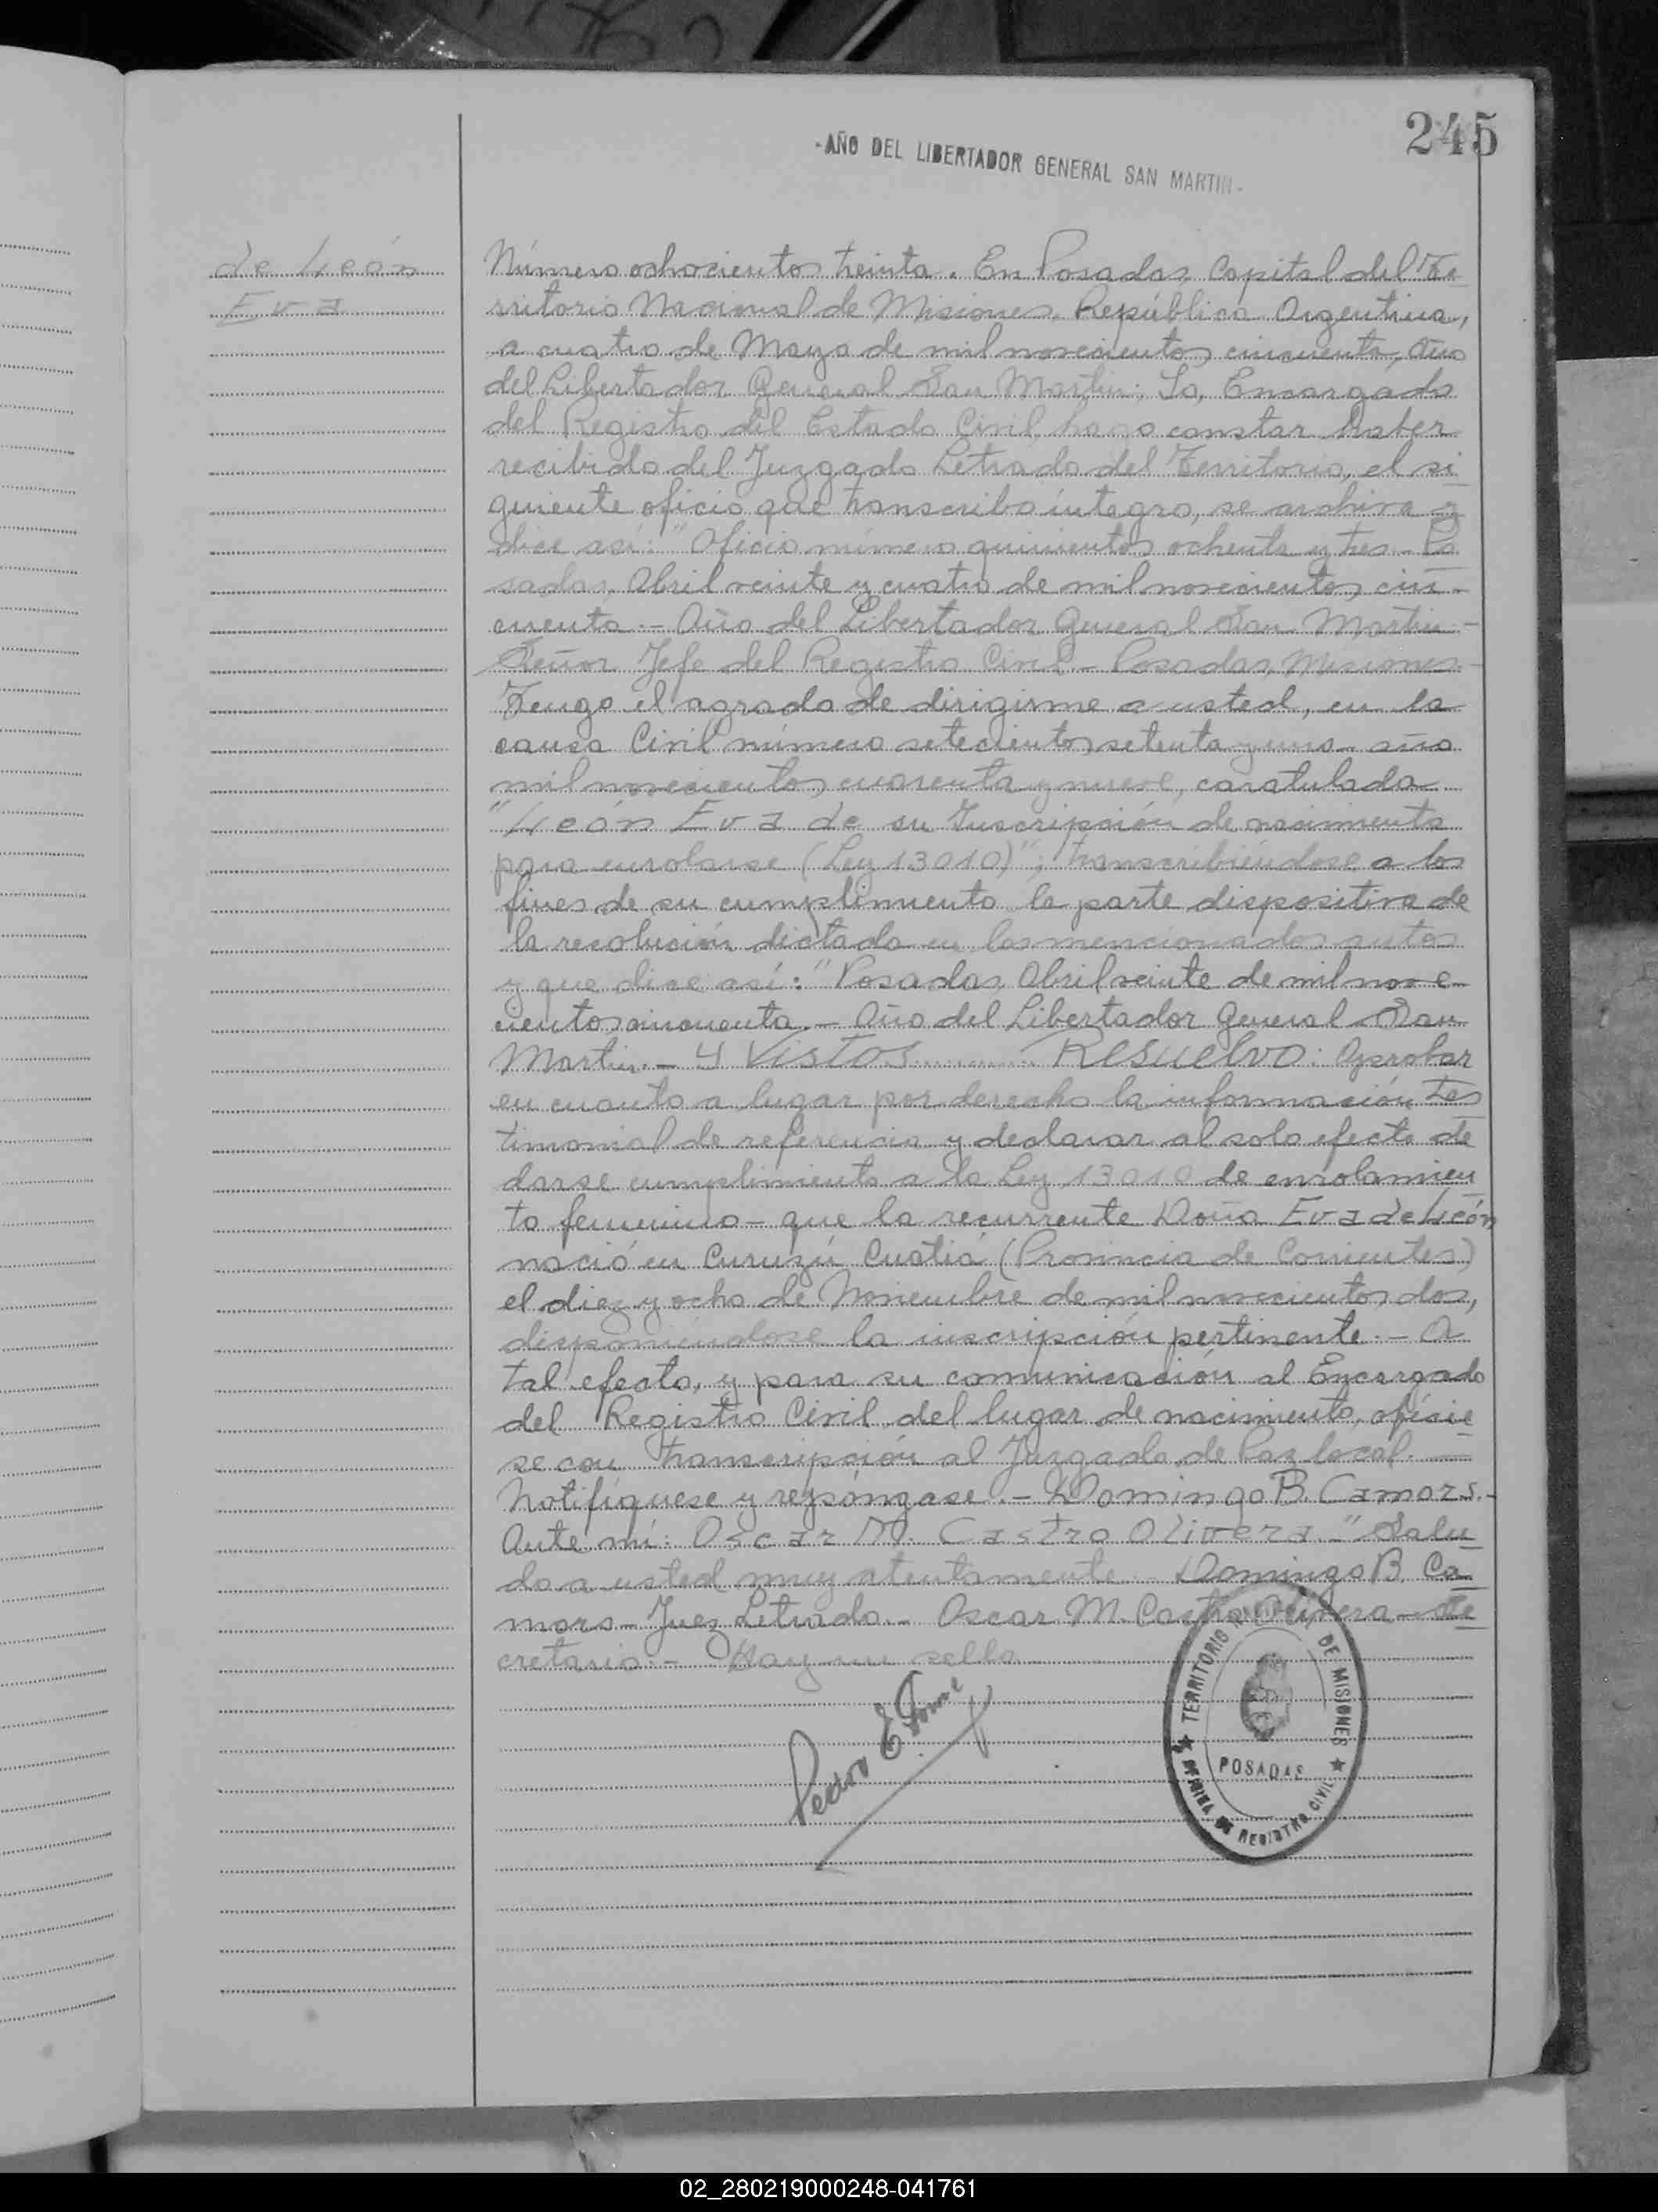 245
-AÑO DEL LIBERTADOR GENERAL SAN MARTIN-
de León
Eva
Número ochocientos treinta. En Posadas, Capital del Te-
rritorio Nacional de Misiones, República Argentina,
a cuatro de Mayo de mil novecientos cincuenta, Año
del Libertador General San Martin: Yo, Encargado
del Registro del Estado Civil, hago constar haber
recibido del Juzgado Letrado del Territorio, el si
guiente oficio que transcribo íntegro, se archiva y
dice así: "Oficio número quinientos ochenta y tres.- Po
sadas, Abril veinte y cuatro de mil novecientos cin-
cuenta.- Año del Libertador General San Martin.-
Señor Jefe del Registro Civil- Posadas, Misiones-
Tengo el agrado de dirigirme a usted, en la
causa Civil número setecientos setenta y uno- año
mil novecientos cuarenta y nueve, caratulada
"León Eva de su Inscripción de nacimiento
para enrolarse (Ley 13010)"; transcribiéndose a los
fines de su cumplimiento la parte dispositiva de
la resolución dictada en los mencionados autos
y que dice así: "Posadas, Abril veinte de mil nove-
cientos cincuenta.- Año del Libertador General San
Martin.- Y Vistos.......... Resuelvo: Aprobar
en cuanto a lugar por derecho la información tes
timonial de referencia y declarar al solo efecto de
darse cumplimiento a la Ley 13010 de enrolamien
to femenino- que la recurrente Doña Eva de León
nació en Curuzú Cuatiá (Provincia de Corrientes)
el diez y ocho de Noviembre de mil novecientos dos,
disponiéndose la inscripción pertinente.- A
tal efecto, y para su comunicación al Encargado
del Registro Civil del lugar de nacimiento, oficie
se con transcripción al Juzgado de Paz local.
Notifíquese y repóngase.- Domingo B. Camors.-
Ante mí: Oscar M. Castro Olivera.-" Salu
do a usted muy atentamente.- Domingo B. Ca
mors- Juez Letrado.- Oscar M. Castro Olivera- Se
cretario.- Hay un sello
Pedro E.
TERRITORIO DE MISIONES
POSADAS
OFICINA DE REGISTRO CIVIL
02_280219000248-041761